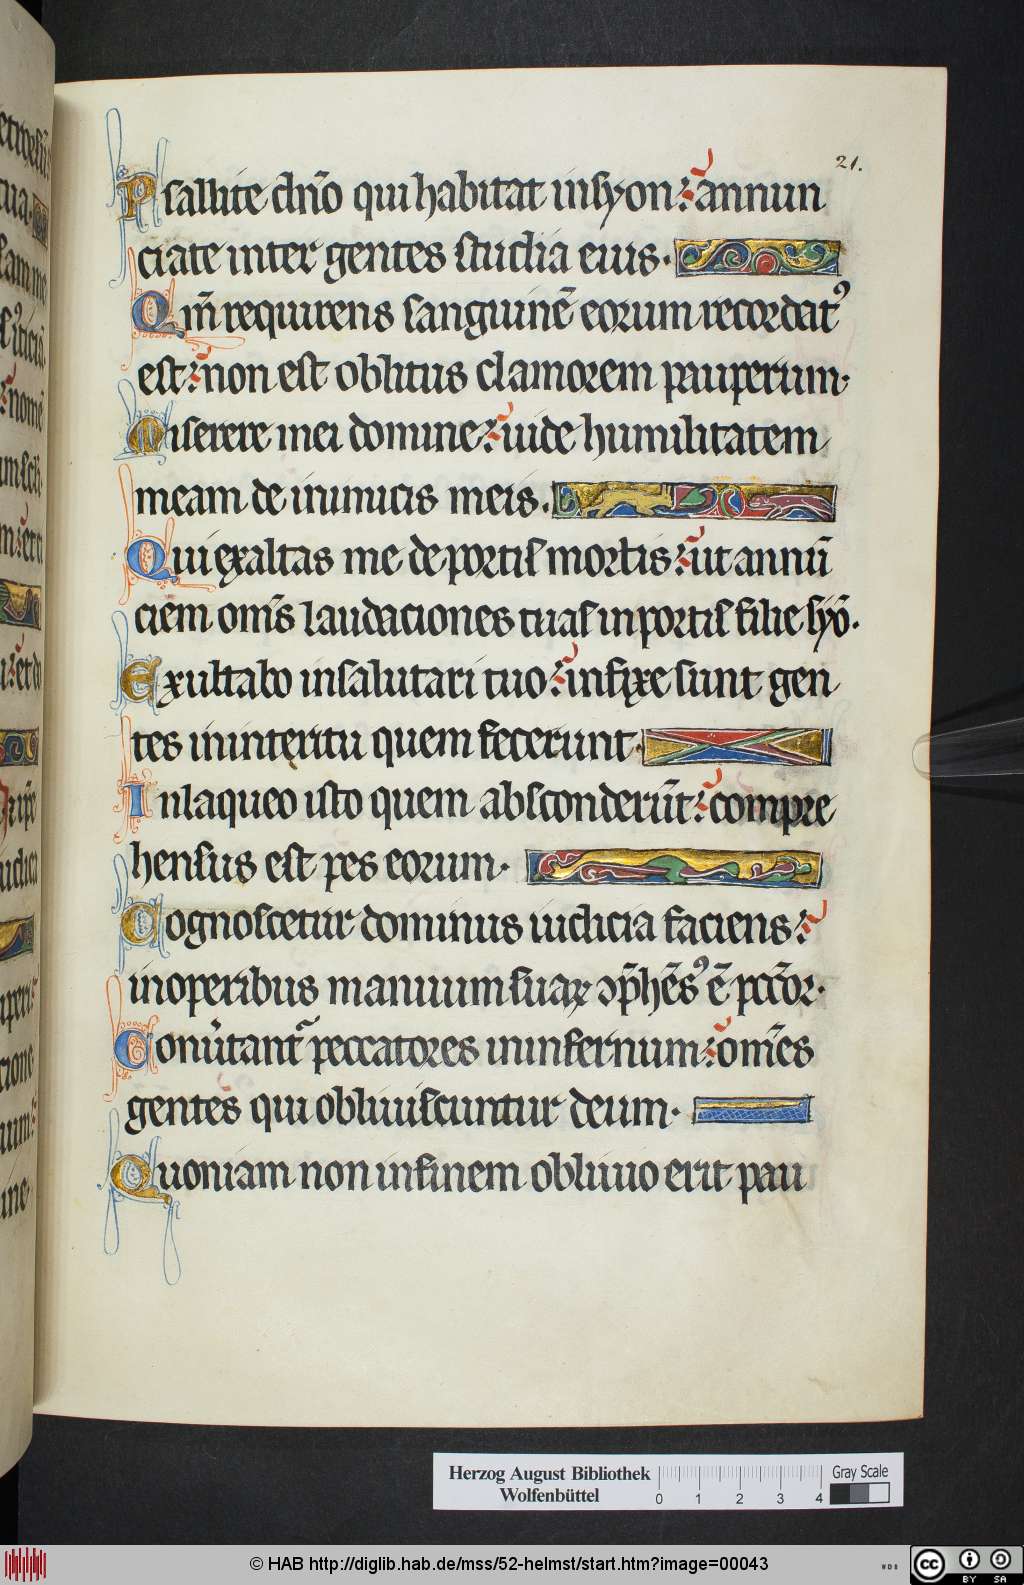 21.
Psallite dn̄o qui habitat in syon: annun
ciate inter gentes studia eius.
Qm̄ requirens sanguinē eorum recordatꝰ
est: non est oblitus clamorem pauperum.
Miserere mei domine: uide humilitatem
meam de inimicis meis.
Qui exaltas me de portis mortis: ut annū
ciem om̄s laudaciones tuas in portis filie syō.
Exultabo in salutari tuo: infixe sunt gen
tes in interitu quem fecerunt.
In laqueo isto quem absconderūt: compre
hensus est pes eorum.
Cognoscetur dominus iudicia faciens:
in operibus manuum suaꝝ ɔp̄hēsꝰ ē pccōr.
Conu̓tant᷑ peccatores in infernum: om̄es
gentes qui obliuiscuntur deum.
Quoniam non in finem obliuio erit pau
Herzog August Bibliothek
Wolfenbüttel
0 1 2 3 4
Gray Scale
© HAB http://diglib.hab.de/mss/52-helmst/start.htm?image=00043
WDB
cc
BY SA